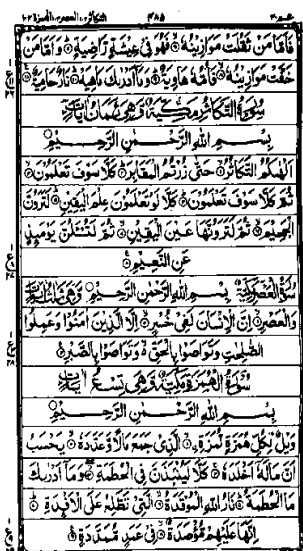 عم ٣٠ ٤٨٥ التكاثر ١٠٢ العصر ١٠٣ الهمزة ١٠٤
فَاَمَّا مَنْ ثَقُلَتْ مَوَازِيْنُهٗ فَهُوَ فِىْ عِيْشَةٍ رَّاضِيَةٍ وَاَمَّا مَنْ
خَفَّتْ مَوَازِيْنُهٗ فَاُمُّهٗ هَاوِيَةٌ وَمَاۤ اَدْرٰىكَ مَاهِيَهْ نَارٌ حَامِيَةٌ
سُوْرَةُ التَّكَاثُرِ مَكِّيَّةٌ وَّهِىَ ثَمَانُ اٰيَاتٍ
بِسْمِ اللّٰهِ الرَّحْمٰنِ الرَّحِيْمِ
اَلْهٰىكُمُ التَّكَاثُرُ حَتّٰى زُرْتُمُ الْمَقَابِرَ كَلَّا سَوْفَ تَعْلَمُوْنَ
ثُمَّ كَلَّا سَوْفَ تَعْلَمُوْنَ كَلَّا لَوْ تَعْلَمُوْنَ عِلْمَ الْيَقِيْنِ لَتَرَوُنَّ
الْجَحِيْمَ ثُمَّ لَتَرَوُنَّهَا عَيْنَ الْيَقِيْنِ ثُمَّ لَتُسْئَلُنَّ يَوْمَئِذٍ
عَنِ النَّعِيْمِ
سُوْرَةُ الْعَصْرِ مَكِّيَّةٌ بِسْمِ اللّٰهِ الرَّحْمٰنِ الرَّحِيْمِ وَّهِىَ ثَلٰثُ اٰيَاتٍ
وَالْعَصْرِ اِنَّ الْاِنْسَانَ لَفِىْ خُسْرٍ اِلَّا الَّذِيْنَ اٰمَنُوْا وَعَمِلُوا
الصّٰلِحٰتِ وَتَوَاصَوْا بِالْحَقِّ وَتَوَاصَوْا بِالصَّبْرِ
سُوْرَةُ الْهُمَزَةِ مَكِّيَّةٌ وَّهِىَ تِسْعُ اٰيَاتٍ
بِسْمِ اللّٰهِ الرَّحْمٰنِ الرَّحِيْمِ
وَيْلٌ لِّكُلِّ هُمَزَةٍ لُّمَزَةٍ الَّذِىْ جَمَعَ مَالًا وَّعَدَّدَهٗ يَحْسَبُ
اَنَّ مَالَهٗۤ اَخْلَدَهٗ كَلَّا لَيُنْۢبَذَنَّ فِى الْحُطَمَةِ وَمَاۤ اَدْرٰىكَ
مَا الْحُطَمَةُ نَارُ اللّٰهِ الْمُوْقَدَةُ الَّتِىْ تَطَّلِعُ عَلَى الْاَفْئِدَةِ
اِنَّهَا عَلَيْهِمْ مُّؤْصَدَةٌ فِىْ عَمَدٍ مُّمَدَّدَةٍ